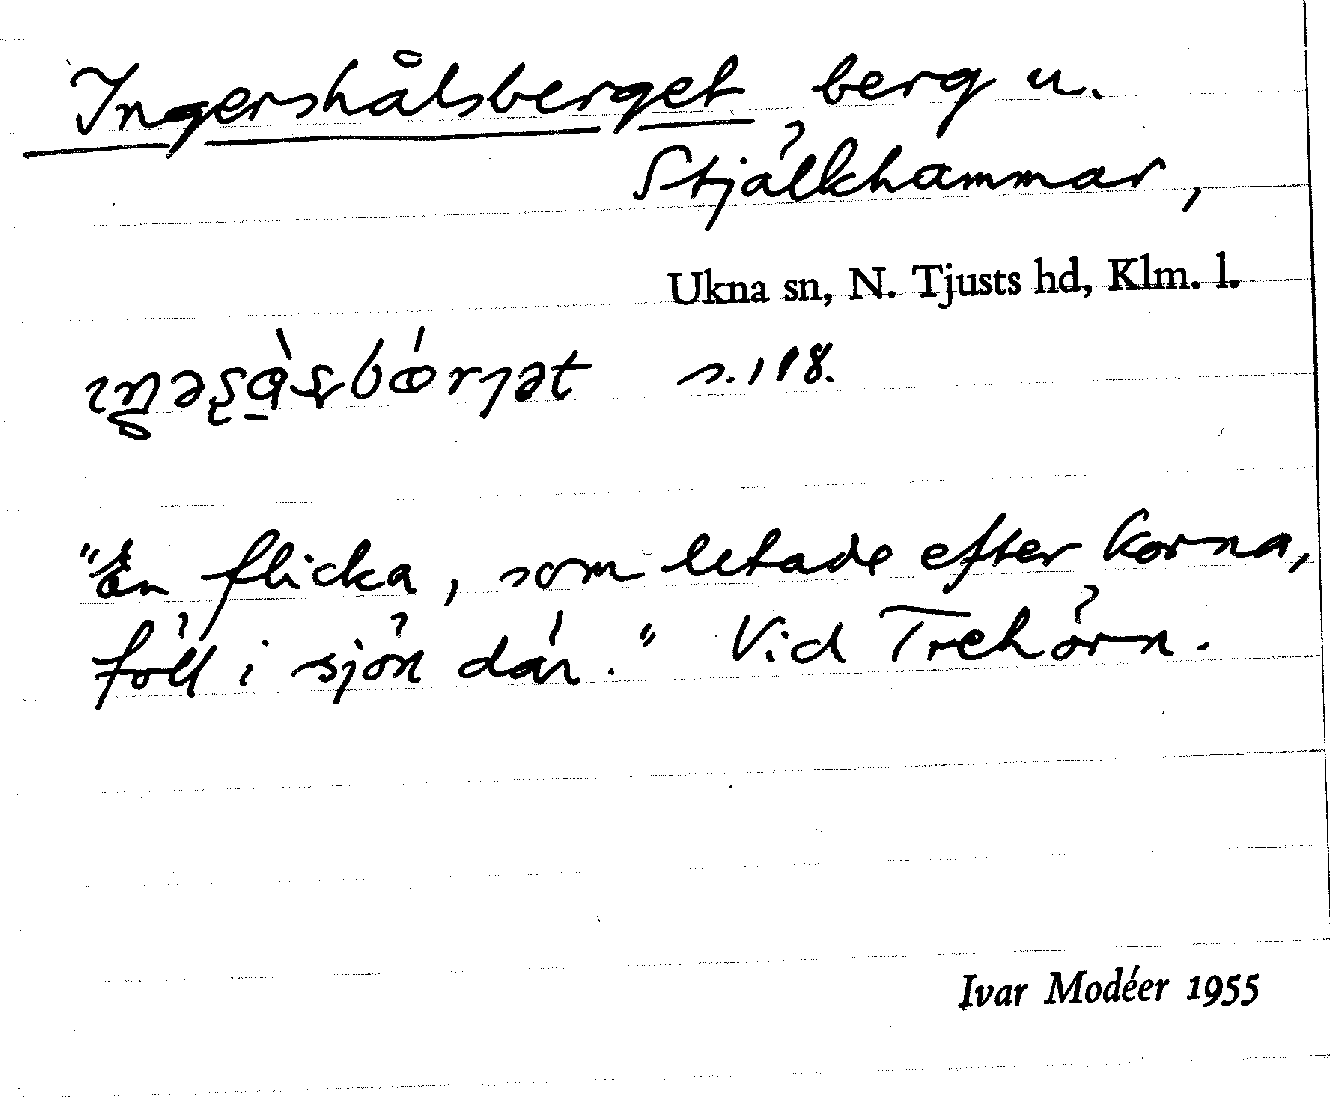 Ingershålsberget berg u.
Stjälkhammar,
Ukna sn, N. Tjusts hd, Klm. l.
s. 118.
"En flicka, som letade efter korna,
föll i sjön där." Vid Trehörn.
Ivar Modéer 1955